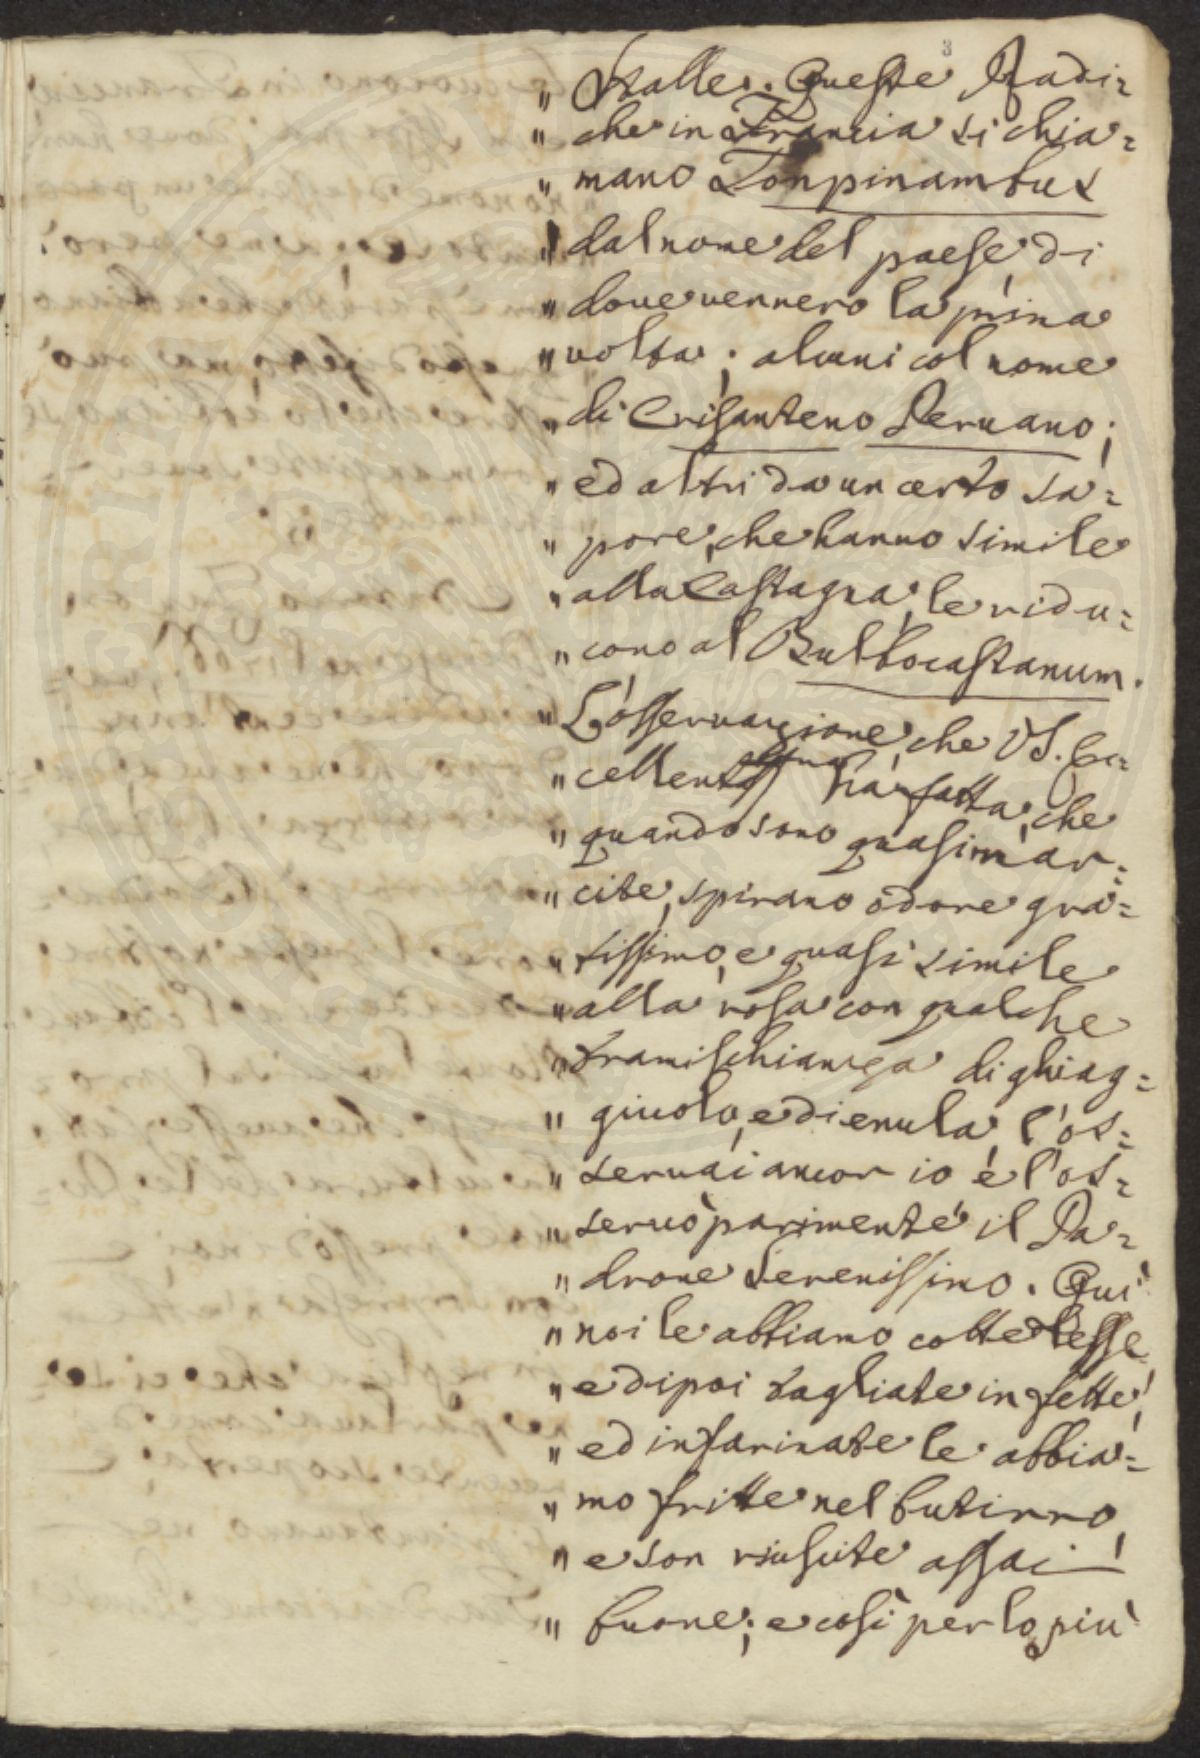 3
" Stalle. Queste Radi=
" che in Francia si chia=
" mano Tonpinambus
" dal nome del paese di
" doue uennero la prima
" uolta; alcuni col nome
" di Crisanteno Peruano;
" ed altri da un certo sa=
" pore, che hanno simile
" alla Castagna, le ridu=
" cono al Bulbocastanum.
" L'osseruazione, che VS. Ec=
" cellentissima hà fatta, che
" quando sono quasi mar=
" cite, spirano odore gra=
" tissimo, e quasi simile
" alla rosa con qualche
" framischianza di ghiag=
" giuolo, e di enula, l'os=
" seruai ancor io è l'os=
" seruò parimente il Pa=
" drone Serenissimo. Quì
" noi le abbiamo cotte lesse
" e di poi tagliate in fette,
" ed infarinate le abbia=
" mo fritte nel butirro,
" e son riuscite assai
" buone; e così per lo più